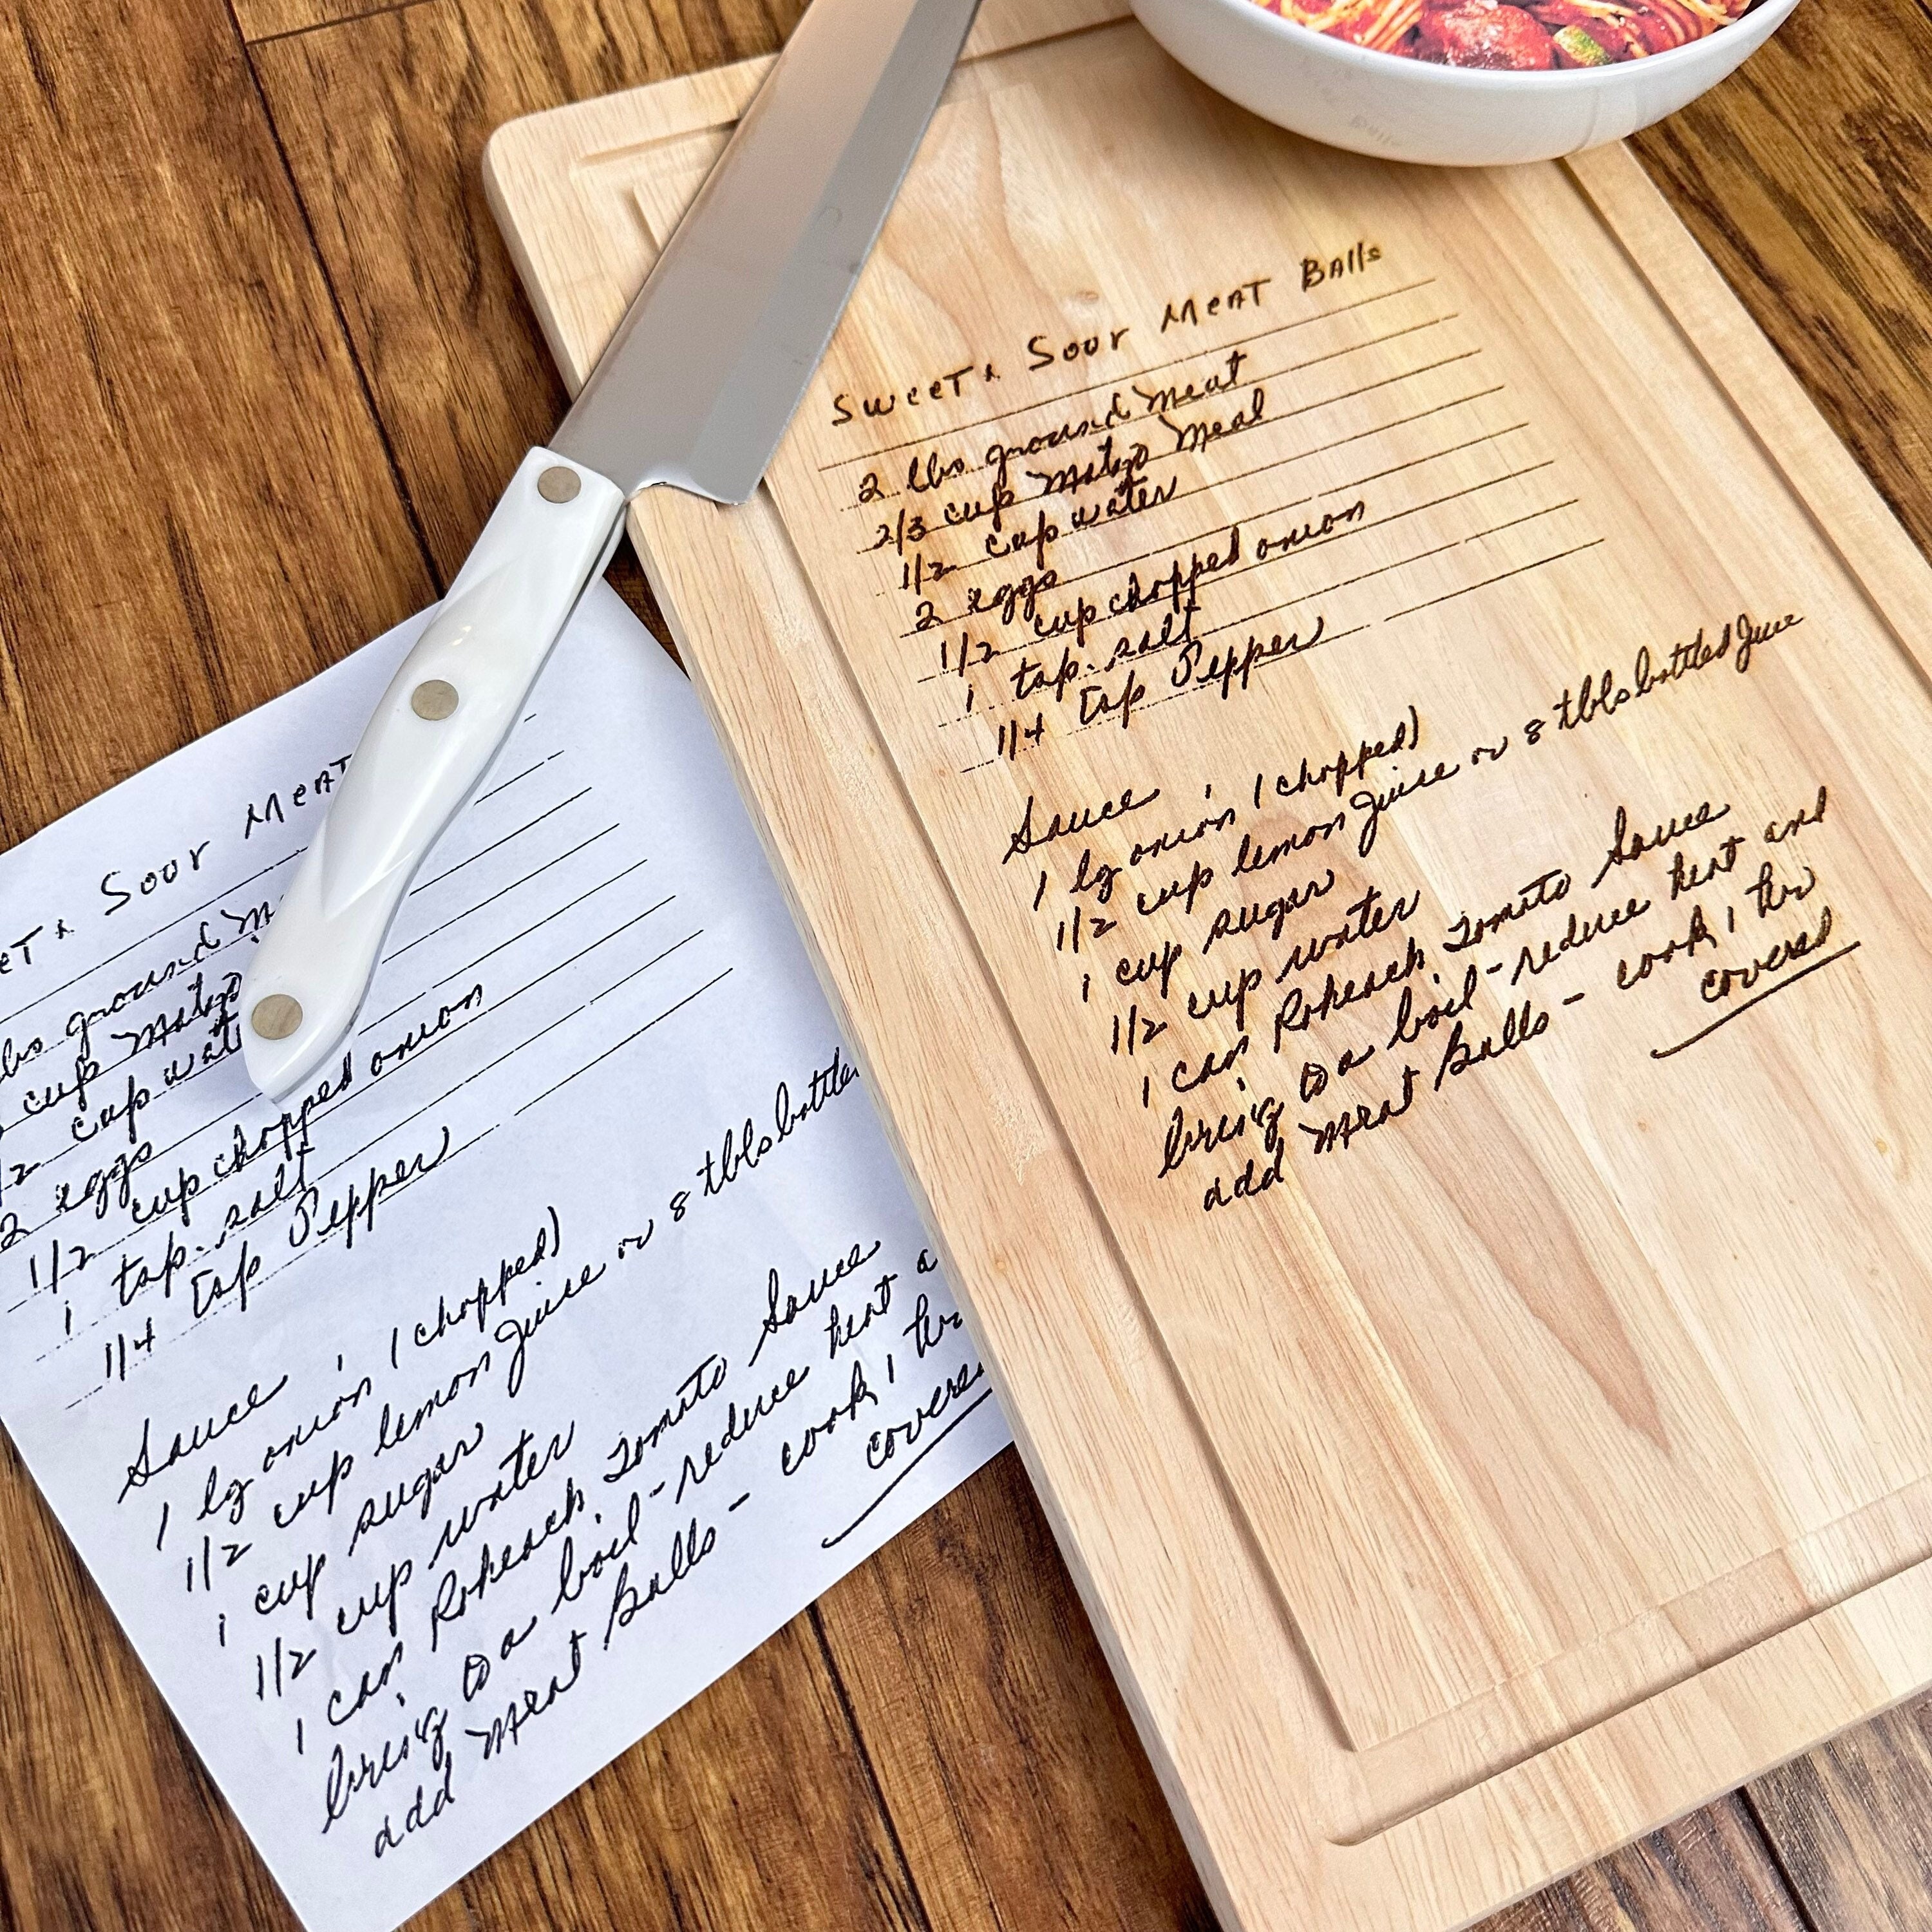 Sweet & Sour Meat Balls
2 lbs ground meat
2/3 cup Matzo Meal
1/2 cup water
2 eggs
1/2 cup chopped onion
1 tsp. salt
1/4 tsp Pepper
Sauce
1 lg onion (chopped)
1/2 cup lemon Juice or 8 tbls bottled Juice
1 cup sugar
1/2 cup water
1 can Rokeach Tomato Sauce
bring to a boil - reduce heat and
add meat Balls - cook 1 hr
covered
eet & Sour Meat
lbs ground m
cup Matzo
1/2 cup wat
2 eggs
1/2 cup chopped onion
1 tsp. salt
1/4 tsp Pepper
Sauce
1 lg onion (chopped)
1/2 cup lemon Juice or 8 tbls bottle
1 cup sugar
1/2 cup water
1 can Rokeach Tomato Sauce
bring to a boil - reduce heat a
add meat Balls - cook 1 hr
covere